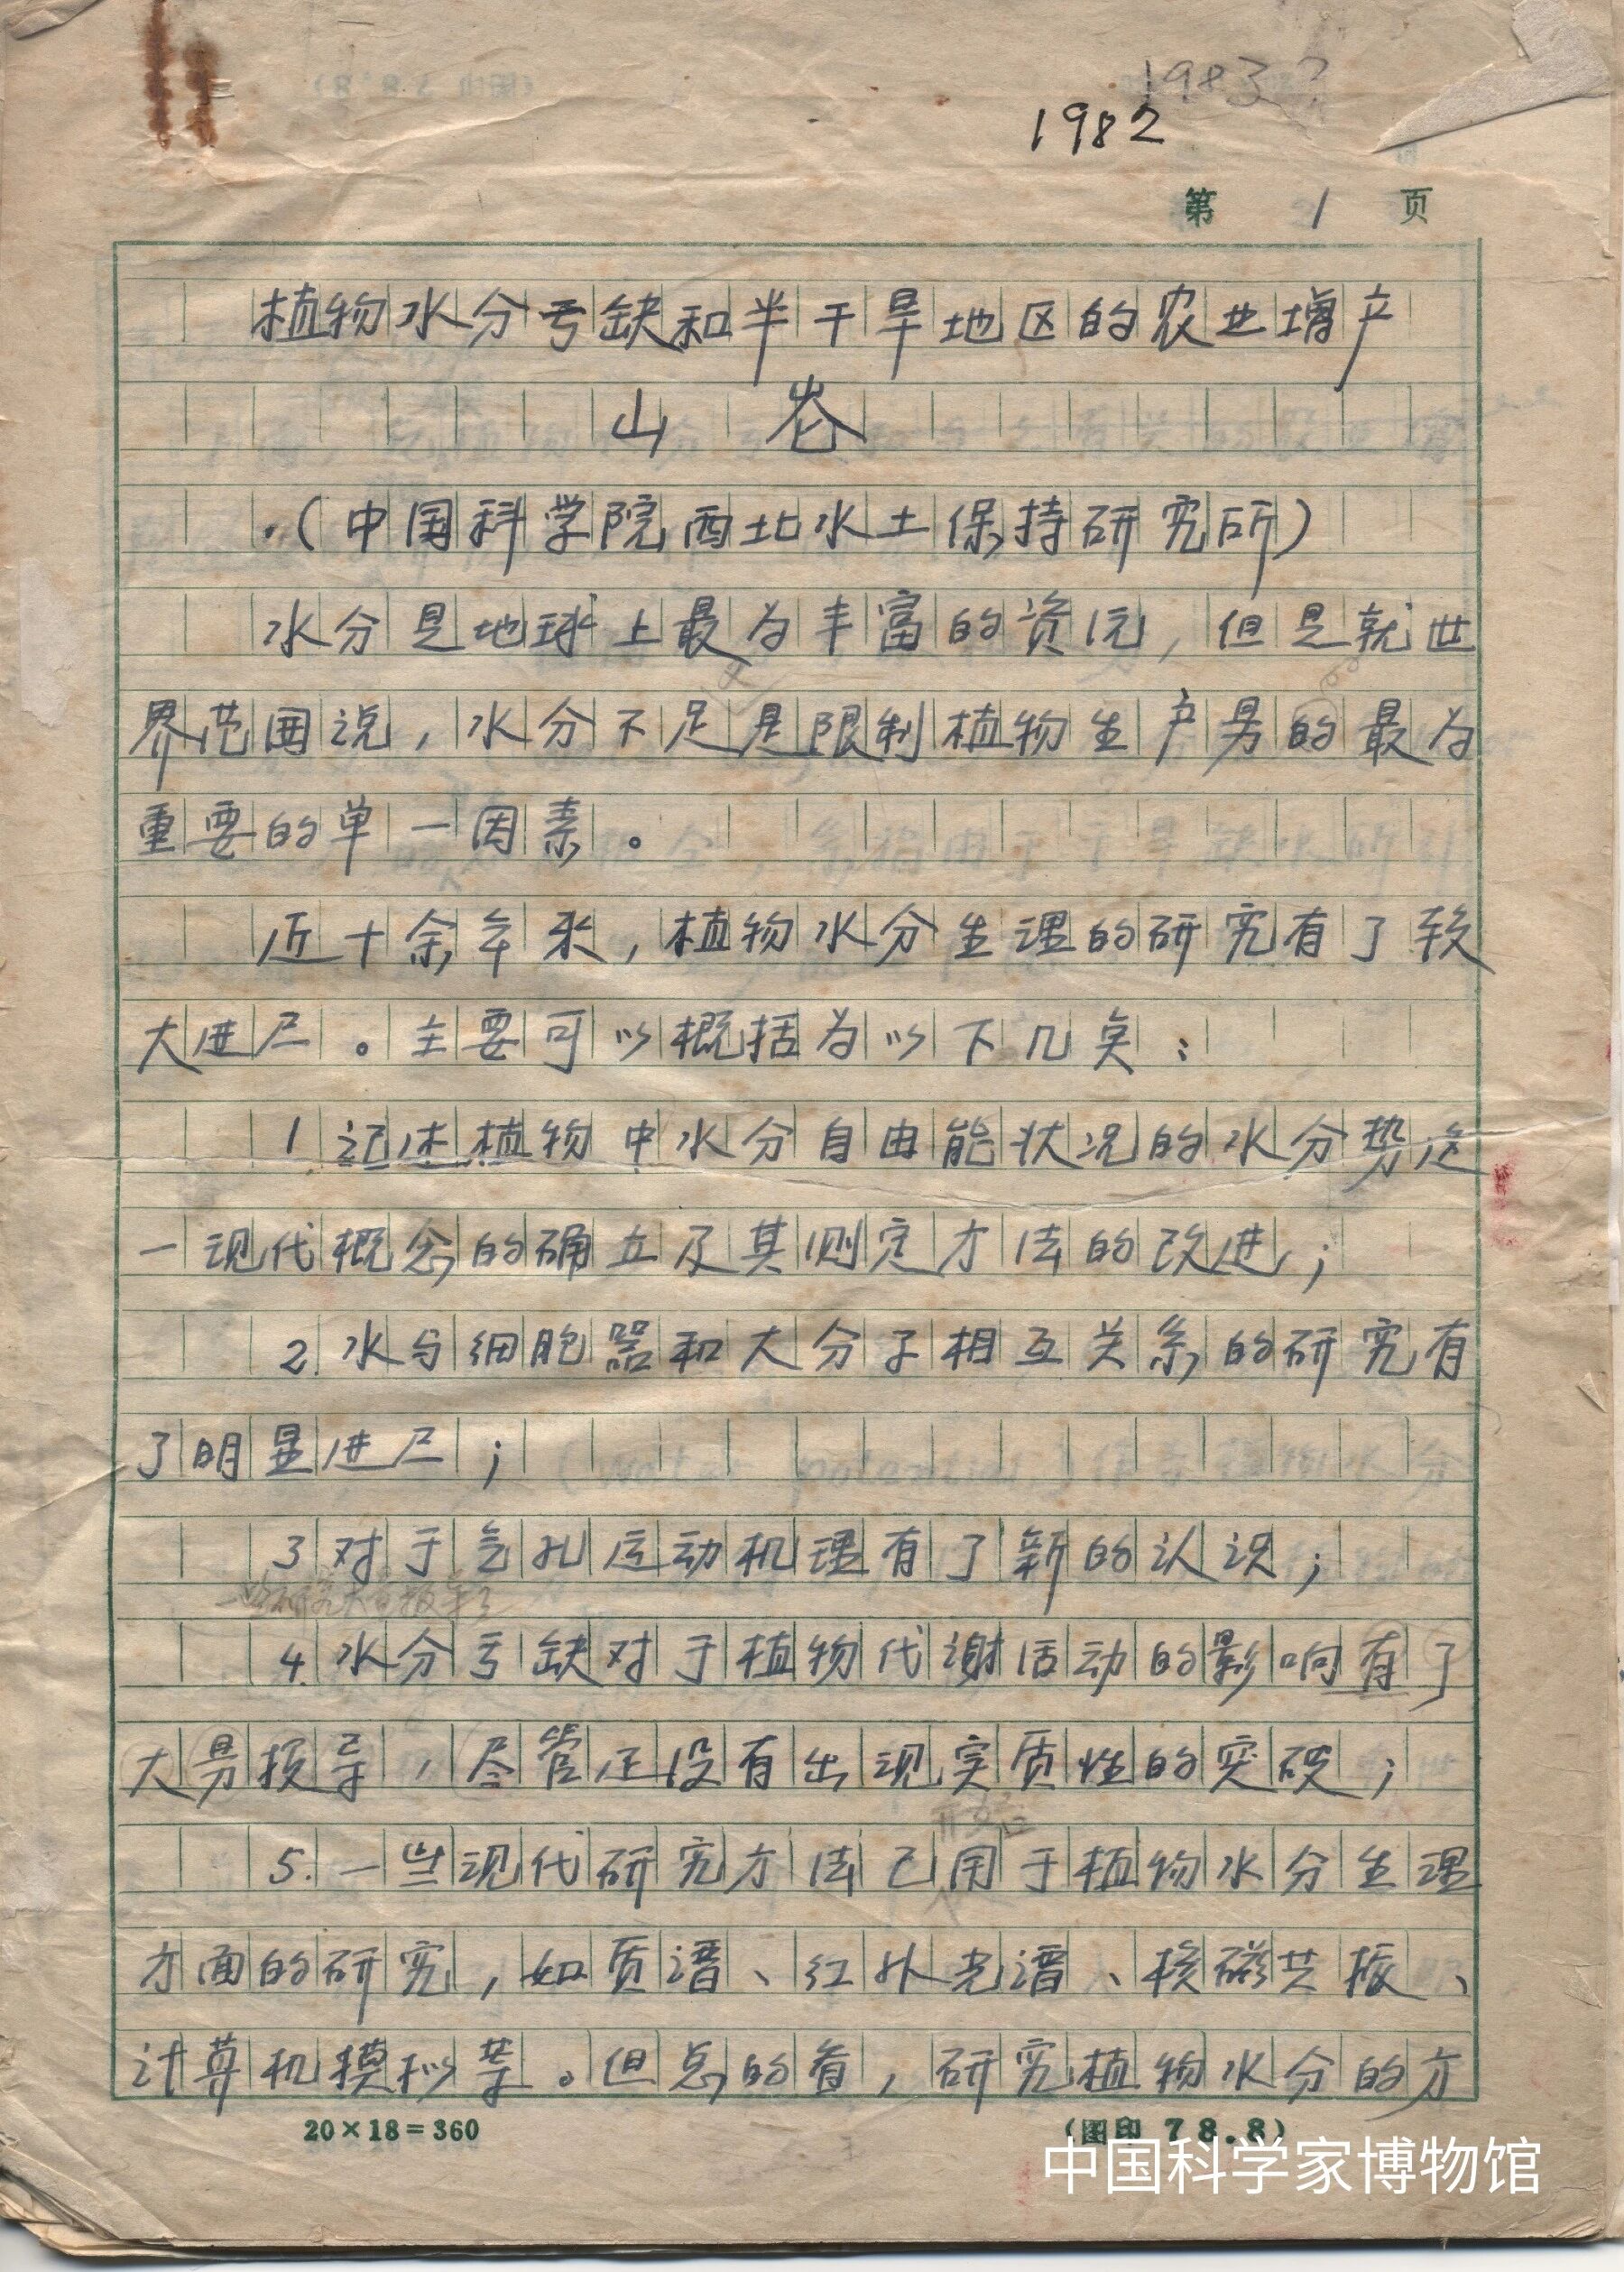 1983?
1982
第 1 页
植物水分亏缺和半干旱地区的农业增产
山 仑
(中国科学院西北水土保持研究所)
水分是地球上最为丰富的资沅,但是就世
界范围说,水分不足是限制植物生产量的最为
重要的单一因素。
近十余年来,植物水分生理的研究有了较
大进尸。主要可以概括为以下几点:
1.记述植物中水分自由能状况的水分势这
一现代概念的确立及其测定方法的改进;
2.水与细胞器和大分子相互关系的研究有
了明显进尸;
3.对于气孔运动机理有了新的认识;
4.水分亏缺对于植物代谢活动的影响有了
大量报导,尽管还没有出现实质性的突破;
5.一些现代研究方法已用于植物水分生理
方面的研究,如质谱、红外光谱、核磁共振、
计算机模拟等。但总的看,研究植物水分的方
20×18=360
(图印 78.8)
中国科学家博物馆